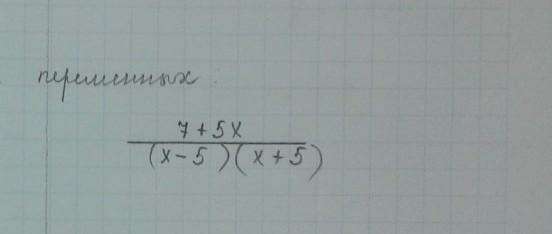 переменных:
7 + 5x
(x - 5)(x + 5)